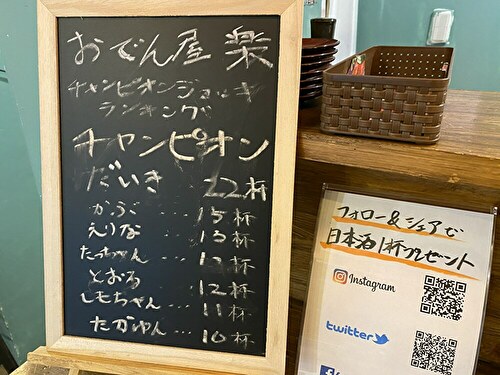 おでん屋 楽
チャンピオンジョッキ
ランキング
チャンピオン
だいき 22杯
かぶ … 15杯
えりな … 13杯
たっちゃん … 12杯
とおる … 12杯
しモちゃん … 11杯
たかゆん … 10杯
フォロー&シェアで
日本酒1杯プレゼント
Instagram
twitter